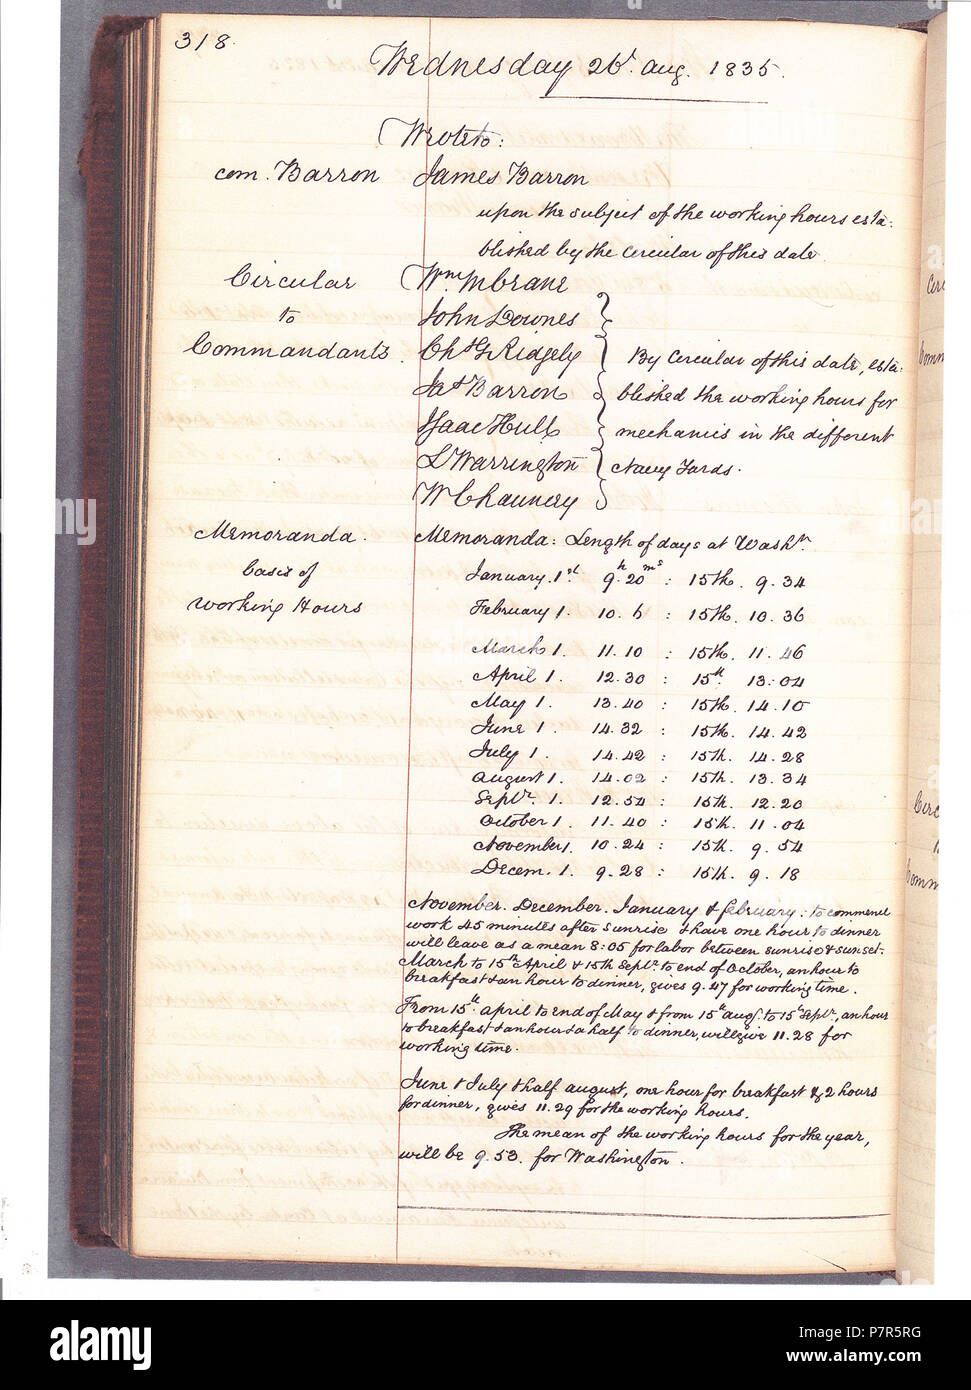 318.
Wednesday 26th. aug. 1835.
Wrote to:
com. Barron James Barron
upon the subject of the working hours esta-
blished by the circular of this date
Circular Wm. M Crane
to John Downes
Commandants. Chs G Ridgely By circular of this date, esta-
Jas Barron blished the working hours for
Isaac Hull mechanics in the different
L Warrington Navy Yards.
W Chauncey
Memoranda. Memoranda: Length of days at Washn.
basis of January. 1st. 9h. 20ms : 15th. 9. 34
working Hours February 1. 10. 6 : 15th. 10. 36
March 1. 11. 10 : 15th. 11. 46
April 1. 12. 30 : 15th. 13. 04
May 1. 13. 40 : 15th. 14. 10
June 1. 14. 32 : 15th. 14. 42
July 1. 14. 42 : 15th. 14. 28
august 1. 14. 02 : 15th. 13. 34
Septr. 1. 12. 54 : 15th. 12. 20
October 1. 11. 40 : 15th. 11. 04
November 1. 10. 24 : 15th. 9. 54
Decem. 1. 9. 28 : 15th. 9. 18
November. December. January & february: to commence
work 45 minutes after sunrise & have one hour to dinner
will leave as a mean 8:05 for labor between sunrise & sunset.
March to 15th April & 15th Septr. to end of October, an hour to
breakfast & an hour to dinner, gives 9. 47 for working time.
From 15th. april to end of May & from 15th augt. to 15th Septr., an hour
to breakfast & an hour & a half to dinner, will give 11. 28 for
working time.
June & July & half august, one hour for breakfast & 2 hours
for dinner, gives 11. 29 for the working hours.
The mean of the working hours for the year,
will be 9. 53. for Washington.
alamy
Image ID: P7R5RG
www.alamy.com